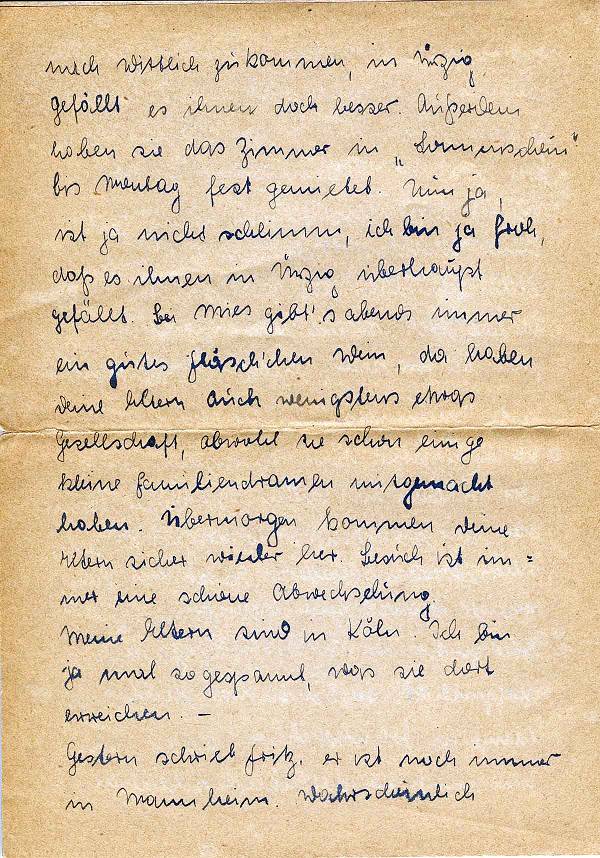 nach Wittlich zu kommen, in Ürzig
gefällt es ihnen doch besser. Außerdem
haben sie das Zimmer in „Sonnenschein“
bis Montag fest gemietet. Nun ja,
ist ja nicht schlimm, ich bin ja froh,
daß es ihnen in Ürzig überhaupt
gefällt. Bei Mies gibt's abends immer
ein gutes Fläschchen Wein, da haben
deine Eltern auch wenigstens etwas
Gesellschaft, obwohl sie schon einige
kleine Familiendramen mitgemacht
haben. Übermorgen kommen deine
Eltern sicher wieder her. Besuch ist im=
mer eine schöne Abwechslung.
Meine Eltern sind in Köln. Ich bin
ja mal so gespannt, was sie dort
erreichen. –
Gestern schrieb Fritz, er ist noch immer
in Mannheim. Wahrscheinlich